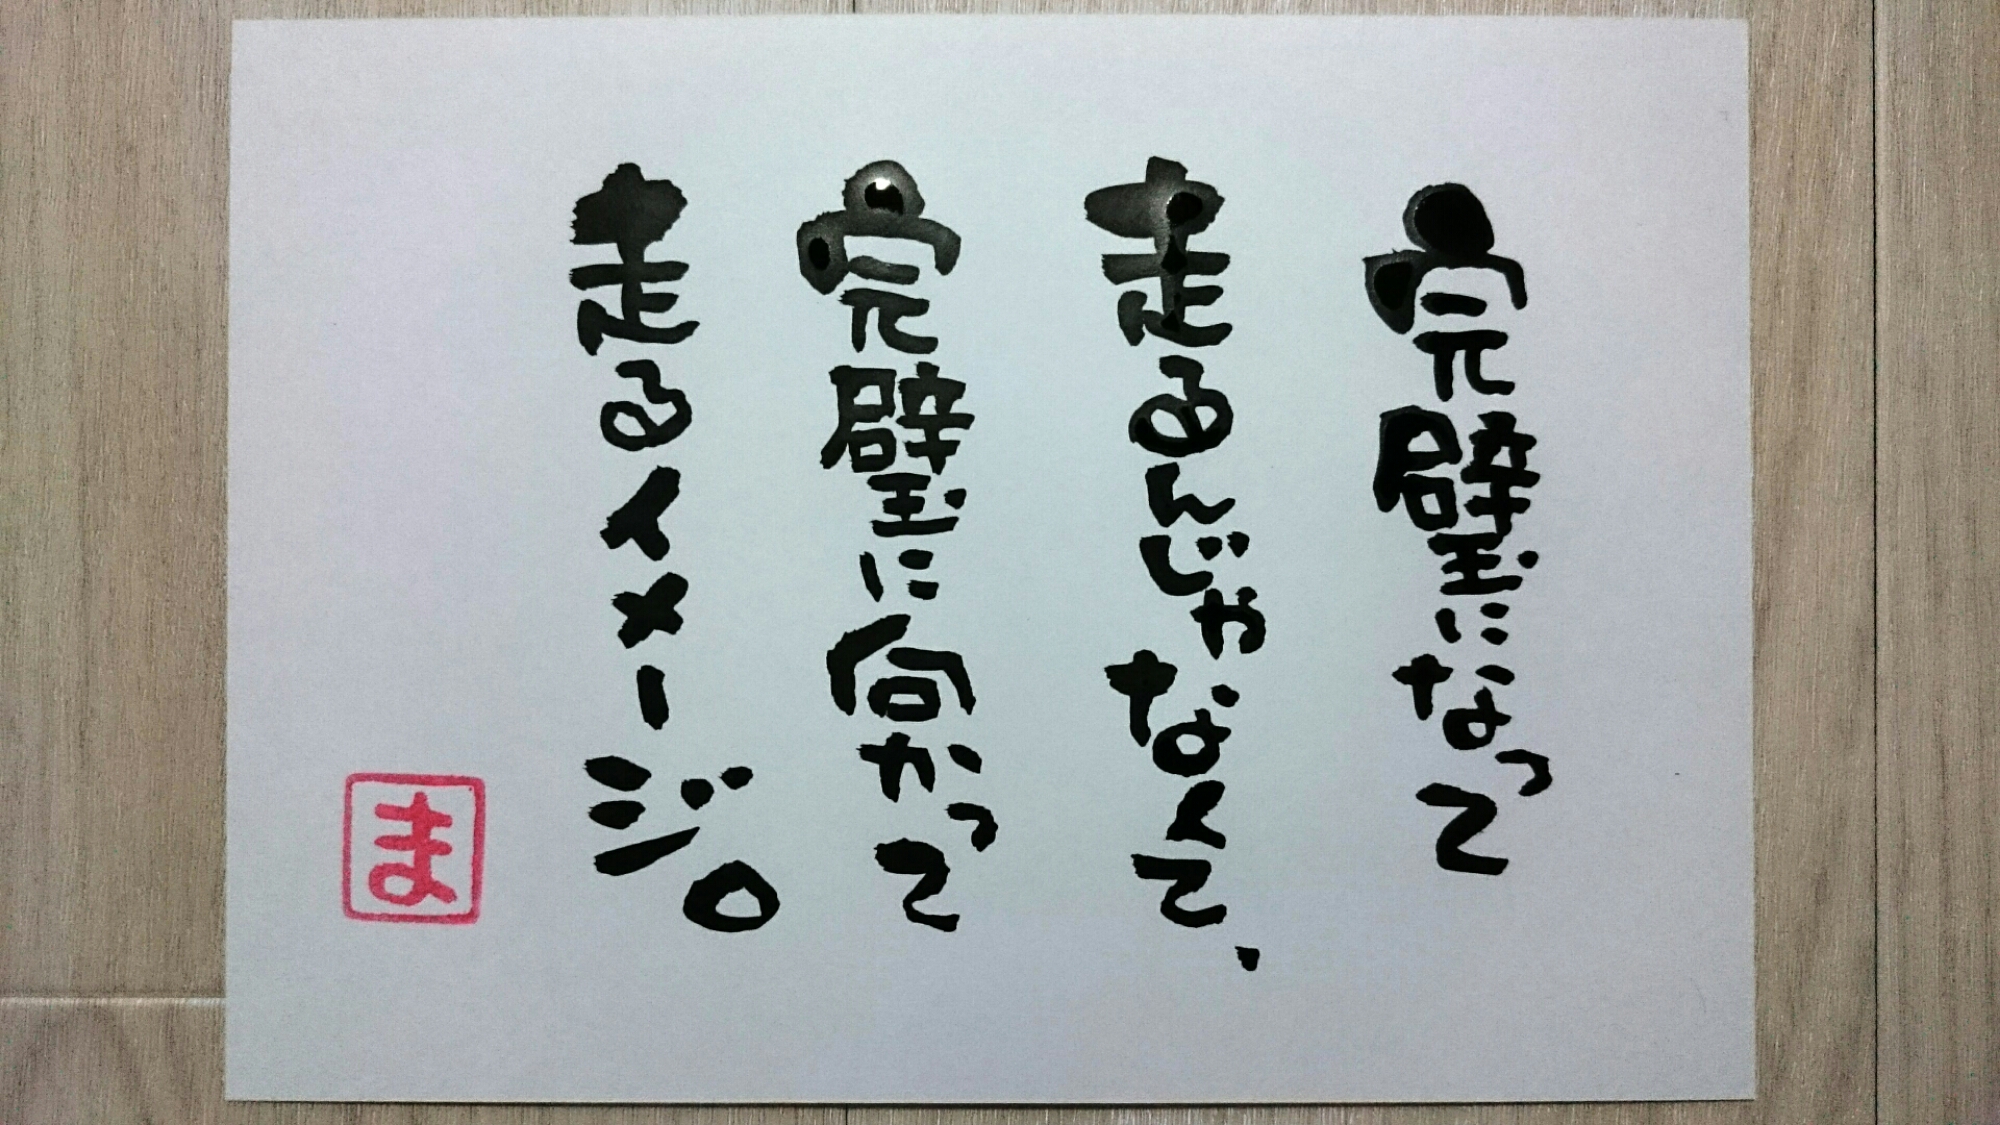 完璧になって
走るんじゃなくて、
完璧に向かって
走るイメージ。
ま